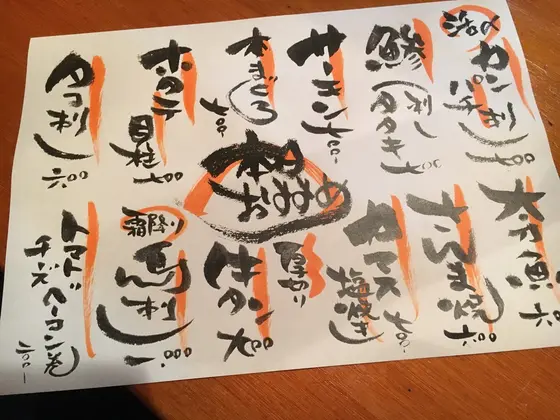 活〆
カンパチ刺し 七〇〇
鯵(刺し タタキ) 七〇〇
サーモン 七〇〇-
本まぐろ 七〇〇-
ホタテ
貝柱 七〇〇
タコ刺し 六〇〇
本日
おすすめ
太刀魚 六〇
さんま焼 六〇〇
カマス
塩焼き 七〇〇-
厚切り
牛タン 七〇〇
霜降り
馬刺し 一.〇〇〇
トマト
チーズベーコン巻
二〇〇-